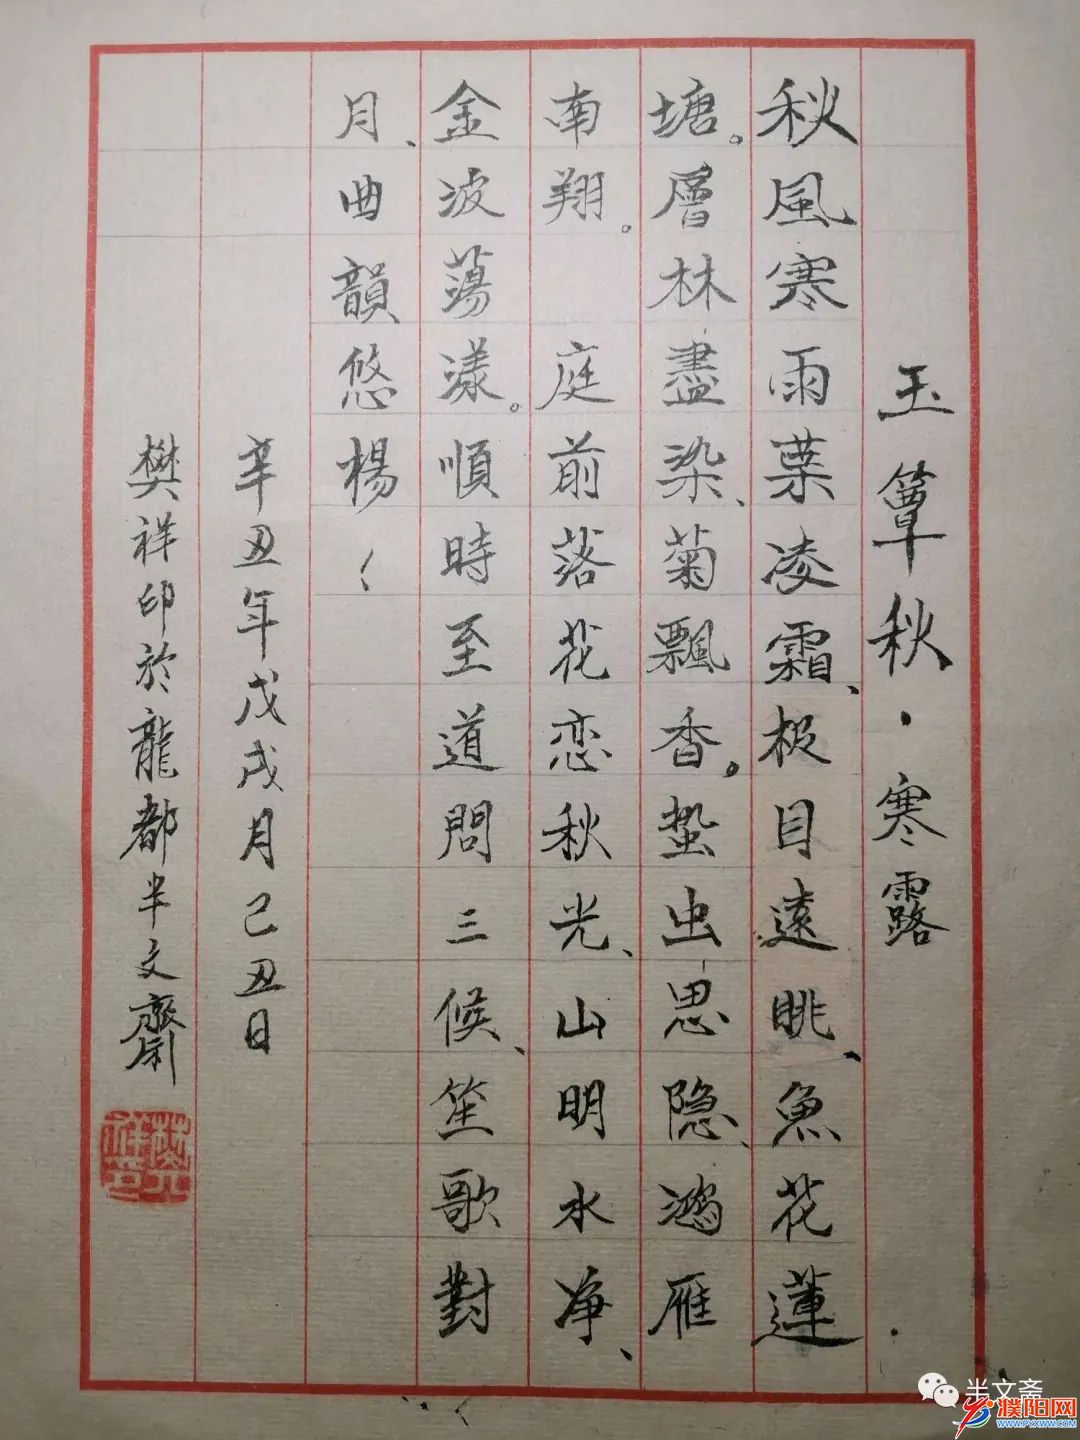 玉簟秋·寒露
秋風寒雨葉凌霜、极目遠眺、魚花蓮
塘。層林盡染、菊飄香。蛰虫思隐、鴻雁
南翔。 庭前落花恋秋光、山明水净、
金波蕩漾。順時至道問三候、笙歌對
月、曲韻悠楊
辛丑年戊戌月己丑日
樊祥印於龍都半文齋
樊祥印
半文斋
濮阳网
WWW.PYXWW.COM